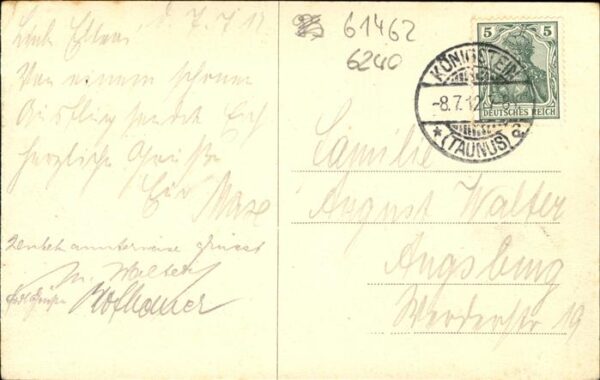 d. 7.7.12
Lieb Eltern
Von einem schönen
Ausflug sendet Euch
herzliche Grüße
Eur Max
grüsst
M. Walter
61462
6240
5 5
DEUTSCHES REICH
KÖNIGSTEIN
-8.7.12.7-8
* (TAUNUS) a
Familie
August Walter
Augsburg
Werderstr 19